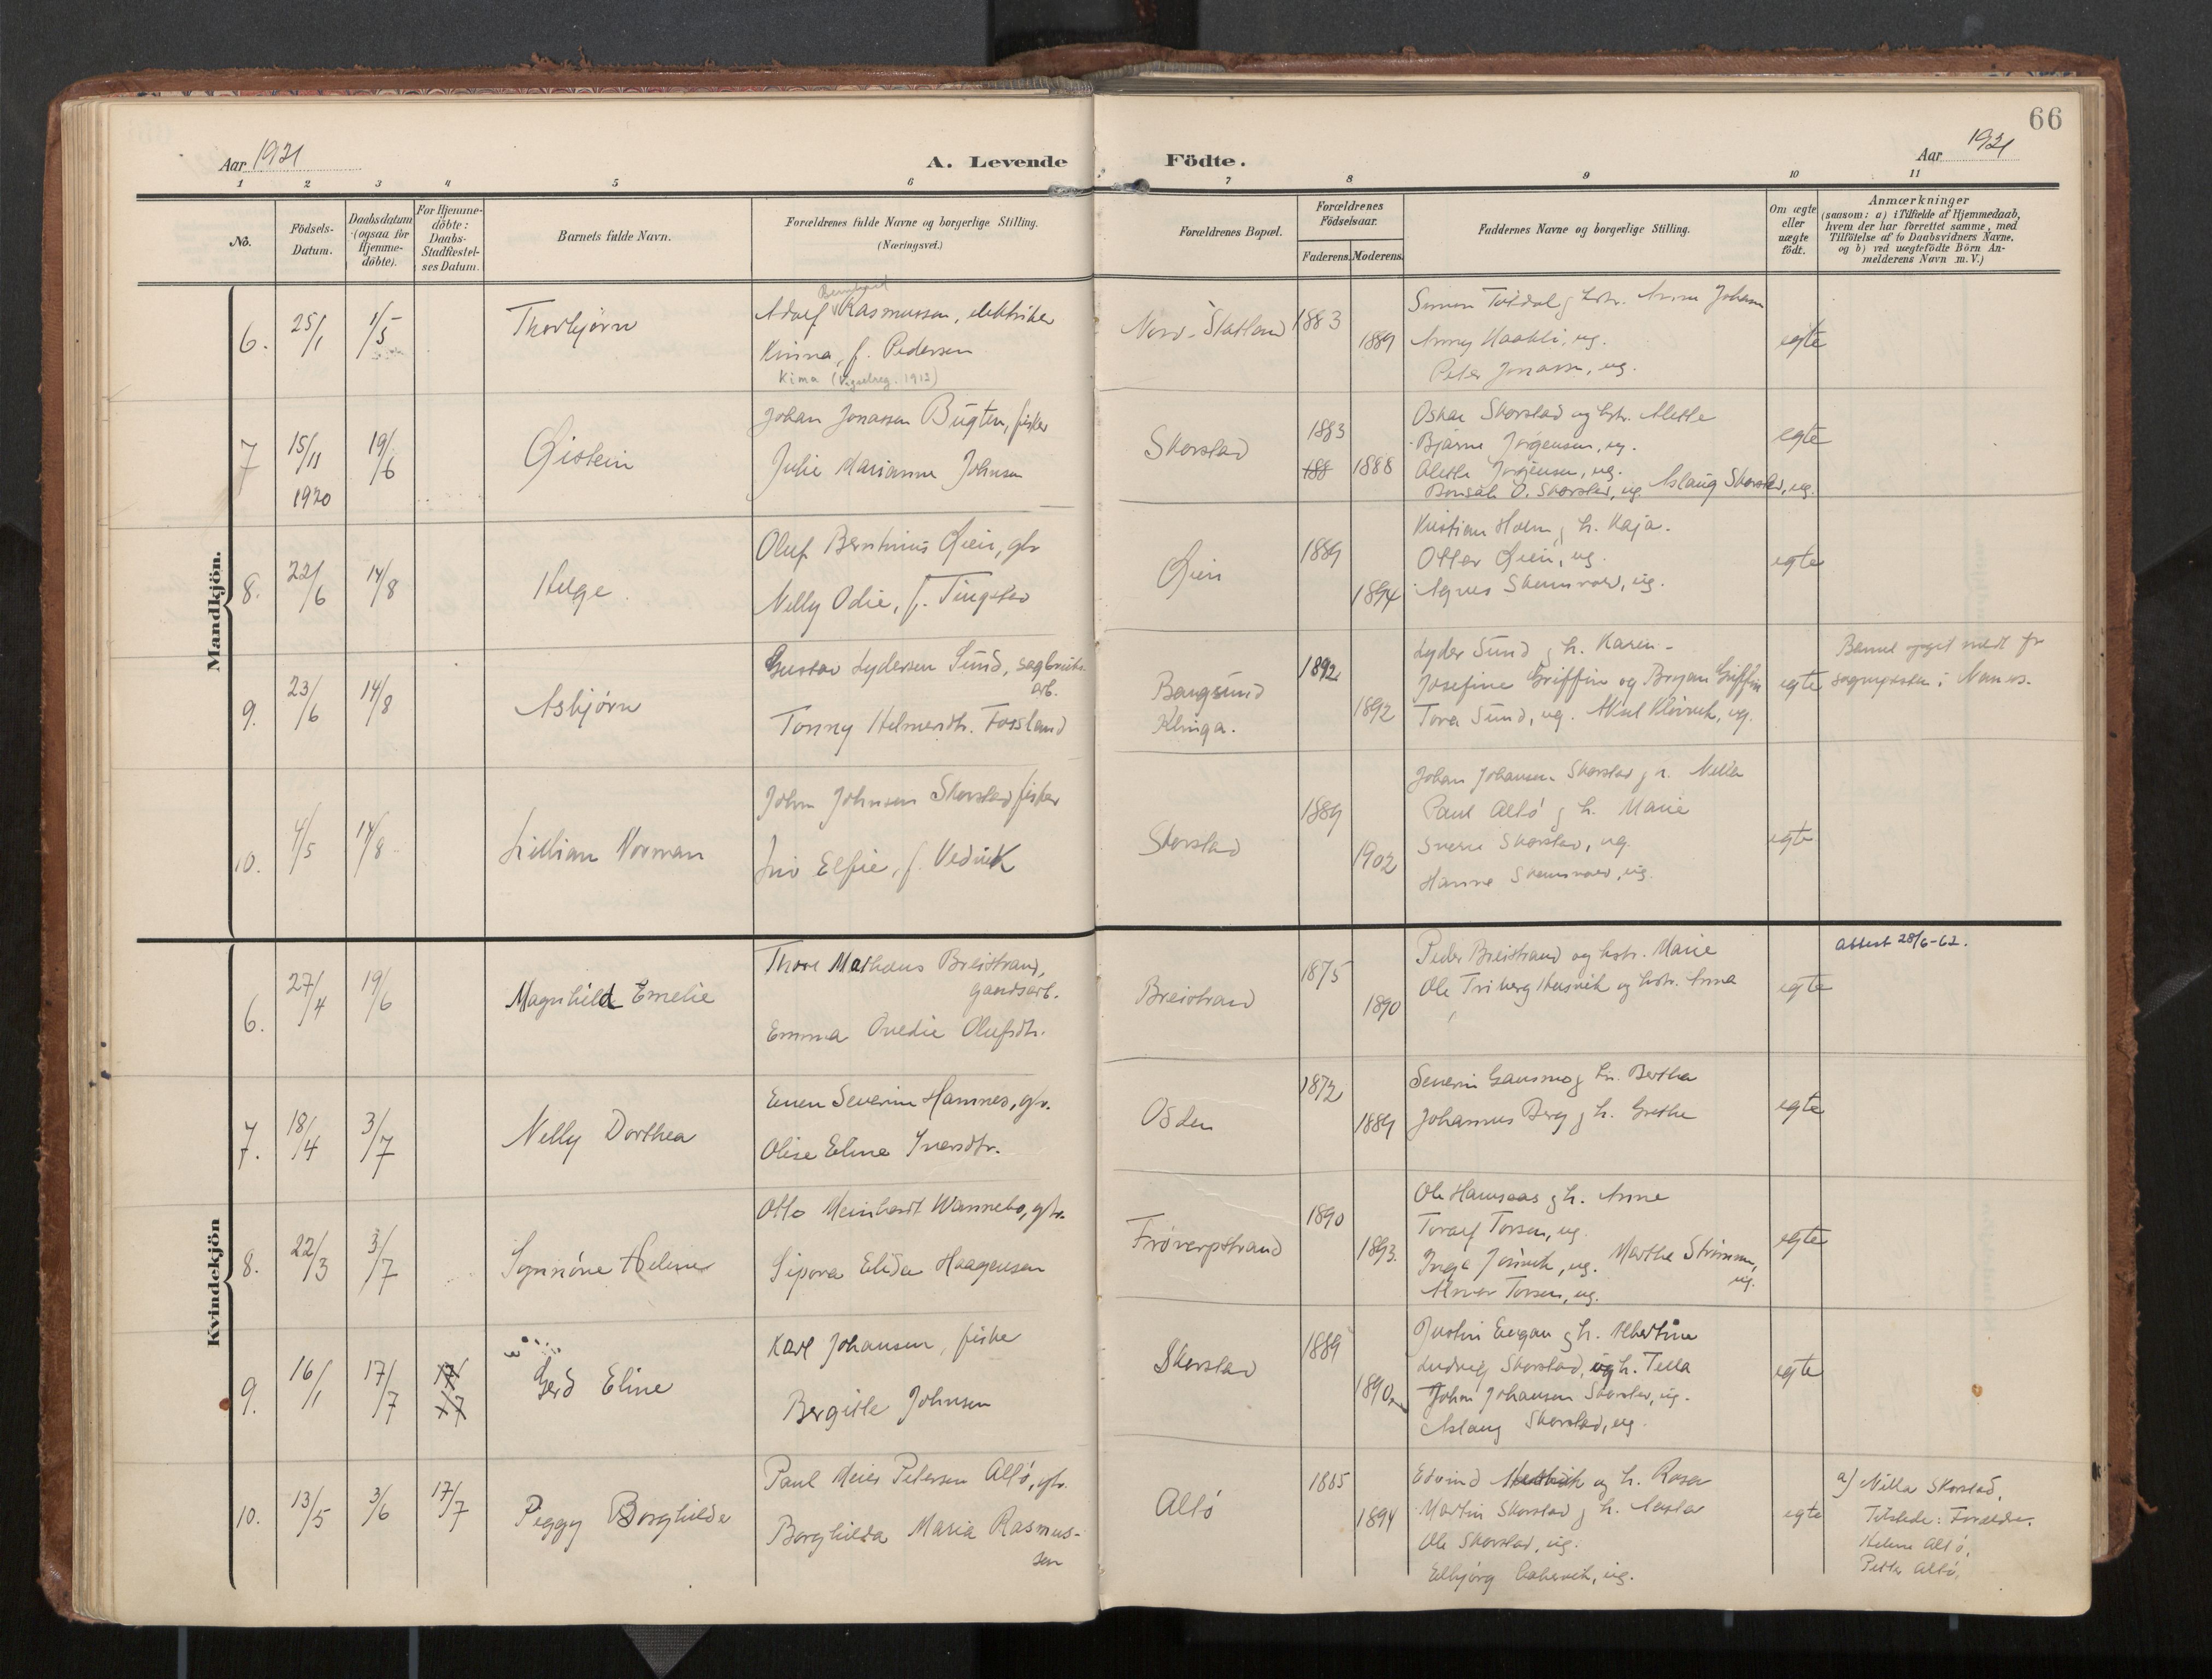 66
Aar 1921
A. Levende Födte.
Aar 1921
1 2 3 4 5 6 7 8 9 10 11
No.
Födsels-Datum.
Daabsdatum (ogsaa for Hjemme-döbte).
For Hjemme-döbte: Daabs-Stadfæstel-ses Datum.
Barnets fulde Navn.
Forældrenes fulde Navne og borgerlige Stilling.
(Næringsvei.)
Forældrenes Bopæl.
Forældrenes Födselsaar.
Faderens. Moderens.
Faddernes Navne og borgerlige Stilling.
Om ægte eller uægte födt.
Anmærkninger
(saasom: a) i Tilfælde af Hjemmedaab, hvem der har forrettet samme, med Tilföielse af to Daabsvidners Navne, og b) ved uægtefödte Börn An-melderens Navn m. V.)
Mandkjön.
6. 25/1 1/5 Thorbjørn
Bernhard
Adolf Rasmussen, elektriker
Kinna, f. Pedersen
Kima (Vigselreg. 1913)
Nord-Statland 1883 1889
Anny Haakli, ug.
Peter Jonassn, ug.
egte
7 15/11 1920 19/6 Øistein
Johan Jonassen Bugten, fisker
Julie Marianne Johnsen
Skorstad 1883 188 1888
Oskar Skorstad og hstr. Alette
Bjarne Jørgensen, ug.
Alette Jørgensen, ug.
O. Skorstad, ug. Aslaug Skorstad, ug.
egte
8. 22/6 14/8 Helge
Oluf Berntinus Øien, gbr
Nelly Odie, f. Tingstad
Øien 1889 1894
Kristian Holm g h. Kaja.
Otter Øien, ug.
Agnes Skeinroed, ug.
egte
9. 23/6 14/8 Asbjørn
Gustav Lydersen Sund, sagbruks-
arb.
Tonny Helmersdtr. Fossland
Bangsund
Klinga.
1892 1892
Lyder Sund g h. Karen -
Josefine Griffin og Bryan Griffin
Tora Sund, ug.
egte
10. 4/5 14/8 Lillian Norman
John Johnsen Skorstad fisker
Elfie, f. Vedvik
Skorstad 1889 1902
Johan Johansen Skorstad g h. Nella
Paul Altø g h. Marie
Sverre Skorstad, ug.
Hanne ug.
egte
Kvindekjön
6. 27/4 19/6 Magnhild Emelie
Thore Matheus Breistrand,
gaardsarb.
Emma Ovedie Olufsdtr.
Breistrand 1875 1890
Peder Breistrand og hstr. Marie
Ole Triberg Husvik og hstr. Anna
egte
Attest 28/6-62.
7. 18/4 3/7 Nelly Dorthea
Even Severin Hamnes, gbr.
Olise Eline Iversdtr.
Osden 1872 1889
Severin Gansmo g h. Bertha
Johannes Berg g h. Grethe
egte
8. 22/3 3/7 Synnøve Helene
Otto Meinhardt Wannebo, gbr.
Sipora Elida Haagensen
Frøverpstrand 1890 1893.
Ole Hamsaas g h. Anne
Toralf Torsen, ug.
Inga ug. Marthe Strømmen,
ug.
Torsen, ug.
egte
9. 16/1 17/7 17/7 Gerd Eline
Karl Johansen, fisker
Bergitte Johnsen
Skorstad 1889 1890
Justin Engan g h. Albertine
Ludvig Skorstad, og h. Tella
John Johansen Skorstad, ug.
Aslaug Skorstad, ug
egte
10. 13/5 3/6 17/7 Peggy Borghilde
Paul Meier Petersen Altø, gbr.
Borghilda Maria Rasmus-
sen
Altø 1885 1894
Edvind og h. Rosa
Martin Skorstad g h. Aasta
Ole Skorstad, ug.
Elbjørg ug.
egte
a) Nilla Skorstad,
Tilstede: Forældre.
Helene Altø,
Petter Altø.